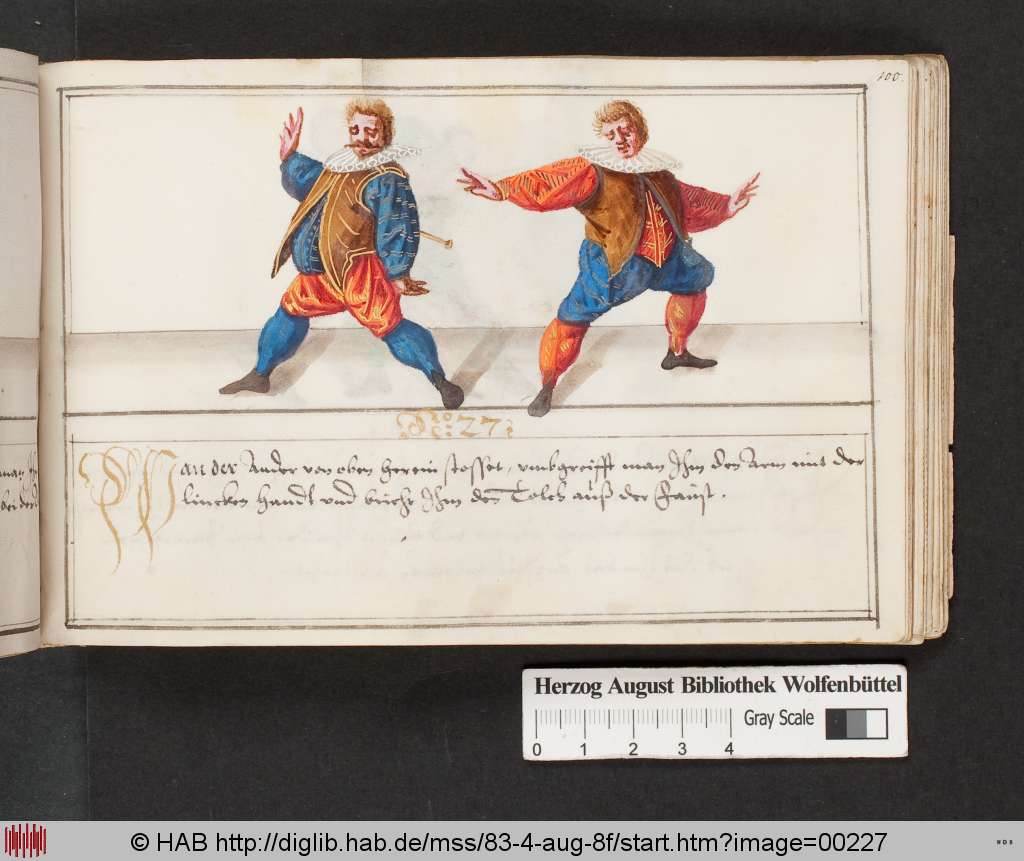 100.
No: 27.
Wan der Ander von oben herein stosset, umbgreifft man Ihm den Arm mit der
lincken handt vnd bricht Ihm den Tolch auß der Faust.
Herzog August Bibliothek Wolfenbüttel
Gray Scale
0 1 2 3 4
© HAB http://diglib.hab.de/mss/83-4-aug-8f/start.htm?image=00227